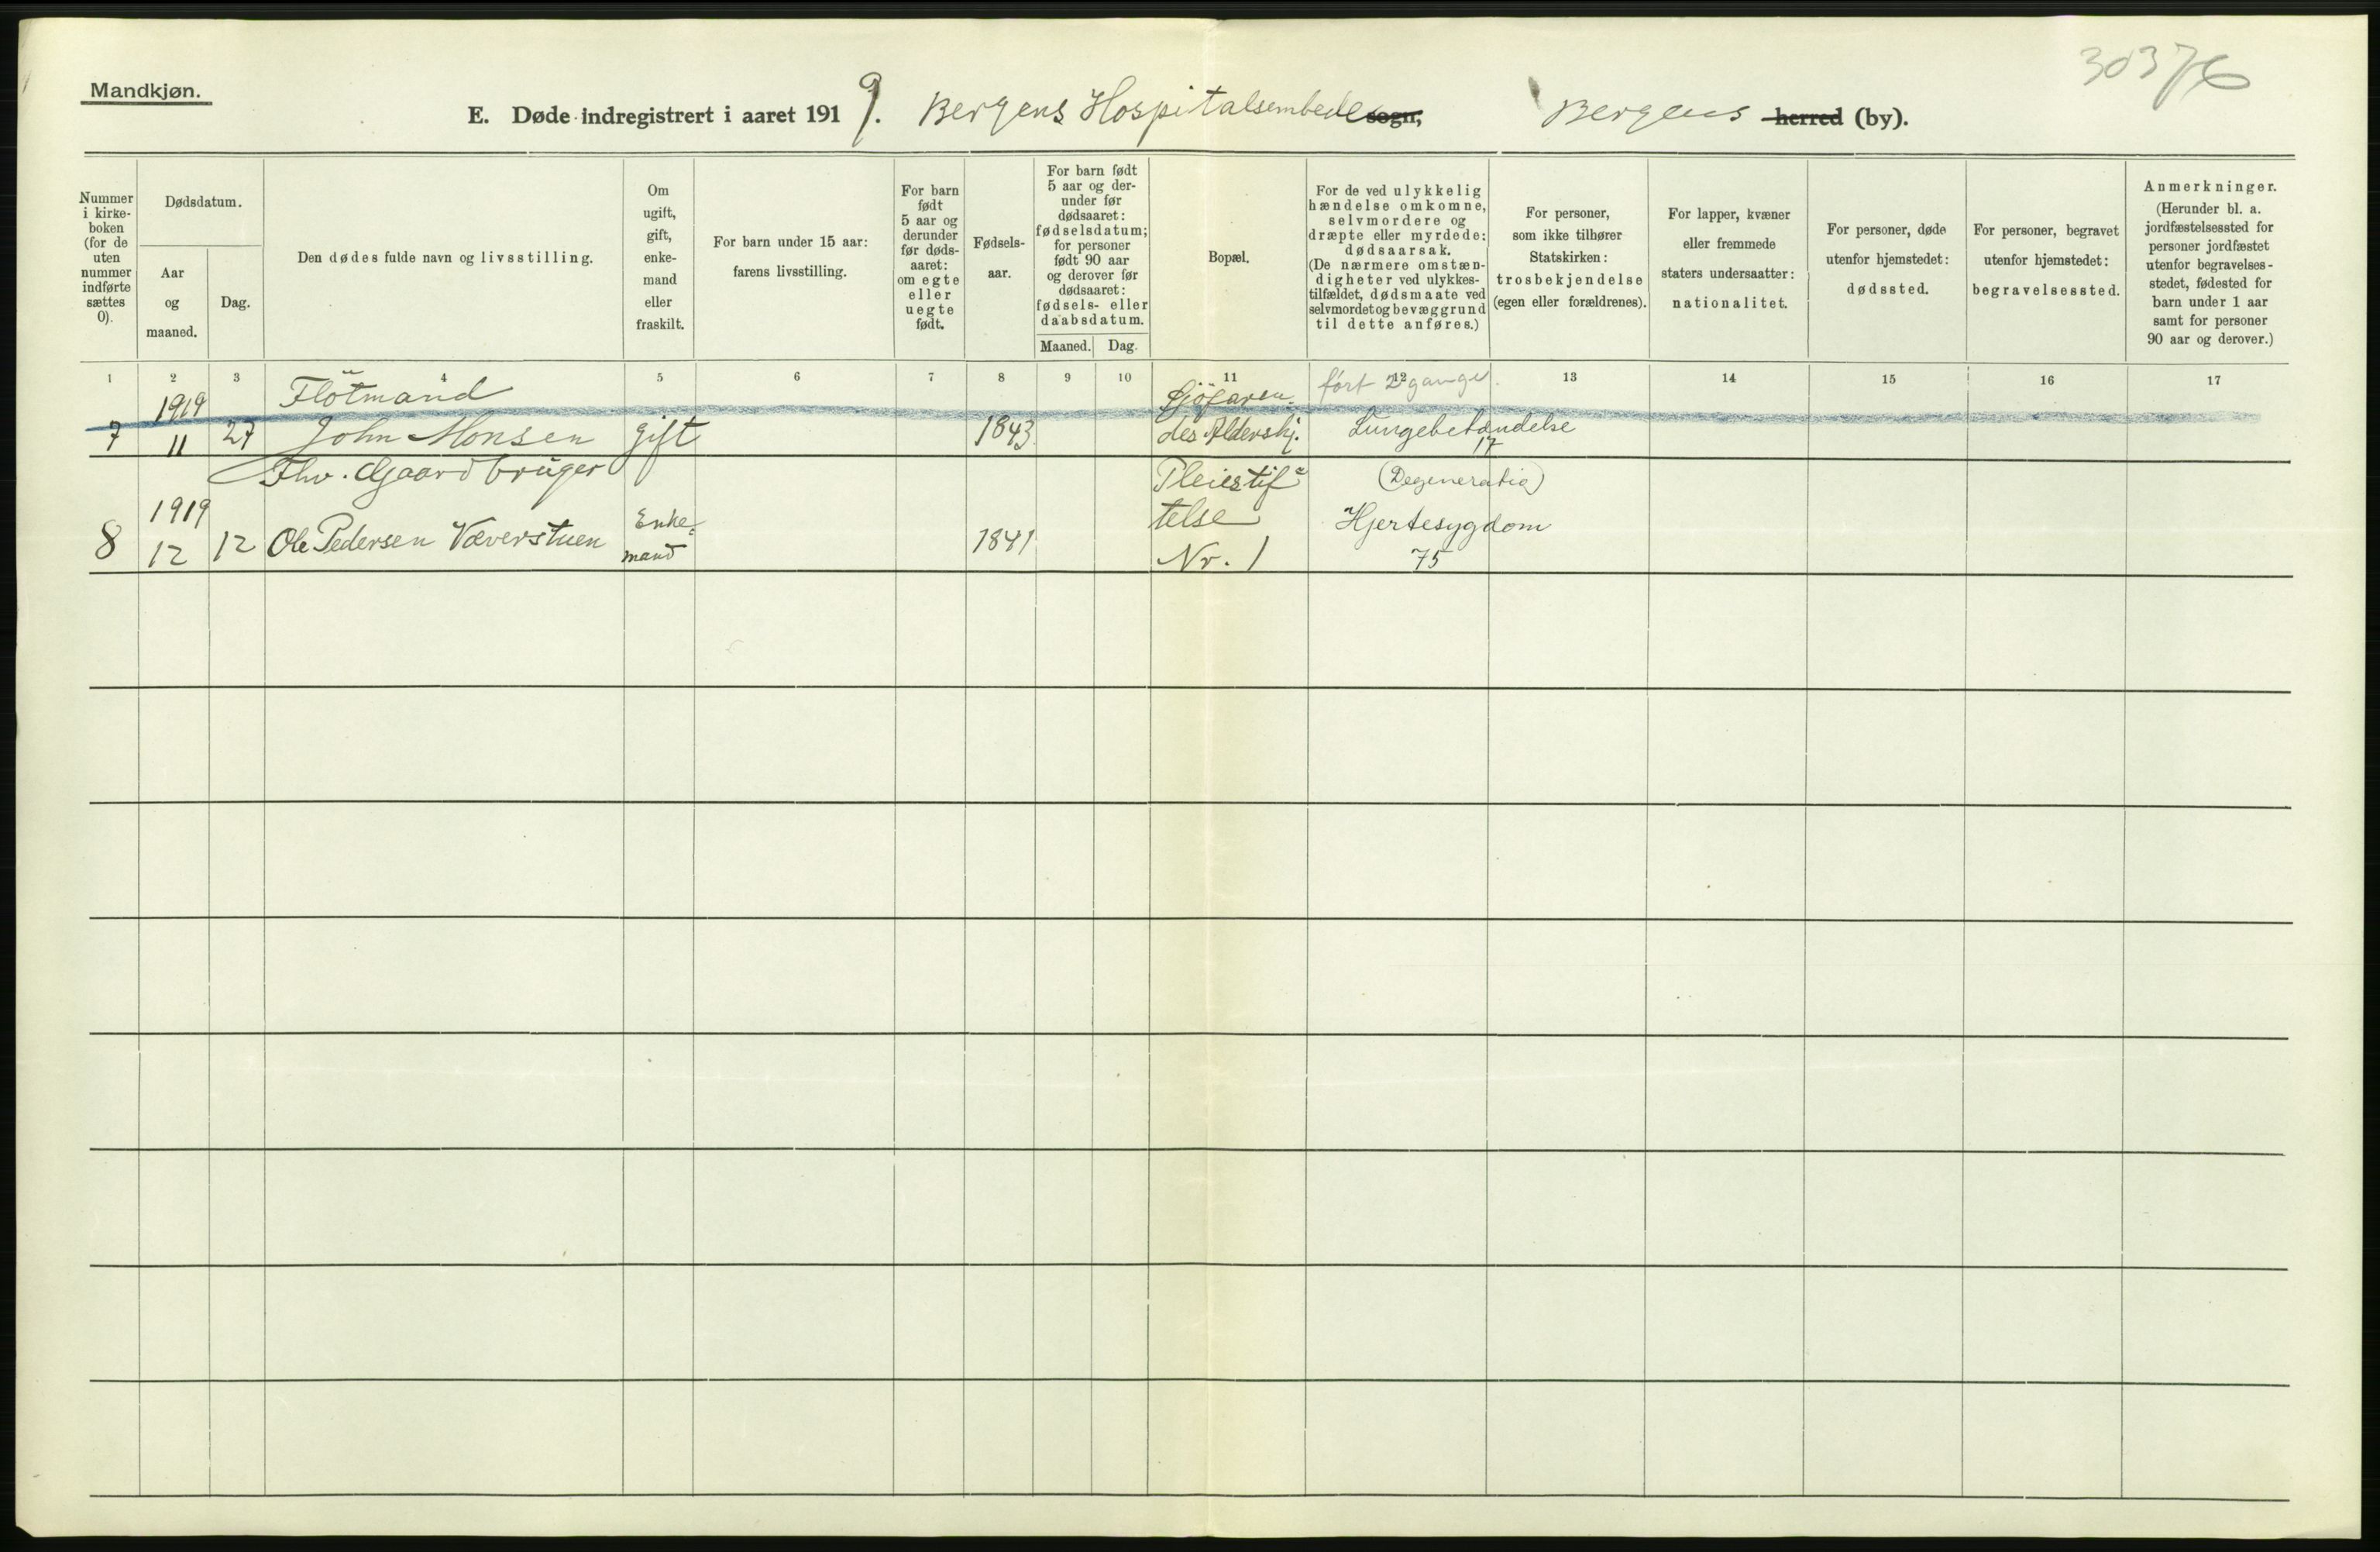 30376
Mandkjøn.
E. Døde indregistrert i aaret 1919. Bergens Hospitalsembede sogn, Bergens herred (by).
Nummer i kirke- boken (for de uten nummer indførte sættes 0).
Dødsdatum.
Aar og maaned.
Dag.
Den dødes fulde navn og livsstilling.
Om ugift, gift, enke- mand eller fraskilt.
For barn under 15 aar: farens livsstilling.
For barn født 5 aar og derunder før døds- aaret: om egte eller uegte født.
Fødsels- aar.
For barn født 5 aar og der- under før dødsaaret: fødselsdatum; for personer født 90 aar og derover før dødsaaret: fødsels- eller daabsdatum.
Maaned. Dag.
Bopæl.
For de ved ulykkelig hændelse omkomne, selvmordere og dræpte eller myrdede: dødsaarsak. (De nærmere omstæn- digheter ved ulykkes- tilfældet, dødsmaate ved selvmordet og bevæggrund til dette anføres.)
For personer, som ikke tilhører Statskirken: trosbekjendelse (egen eller forældrenes).
For lapper, kvæner eller fremmede staters undersaatter: nationalitet.
For personer, døde utenfor hjemstedet: dødssted.
For personer, begravet utenfor hjemstedet: begravelsessted.
Anmerkninger. (Herunder bl. a. jordfæstelsessted for personer jordfæstet utenfor begravelses- stedet, fødested for barn under 1 aar samt for personer 90 aar og derover.)
1 2 3 4 5 6 7 8 9 10 11 12 13 14 15 16 17
1919 Flötmand Sjöfaren- ført 2 gange.
7 11 27 John Monsen gift 1843 des Aldershj. Lungebetændelse
17
Fhv. Gaardbruger Pleiestif- (Degeneratio)
1919 Enke- telse Hjertesygdom
8 12 12 Ole Pedersen Væverstuen mand 1841 Nr. 1 75